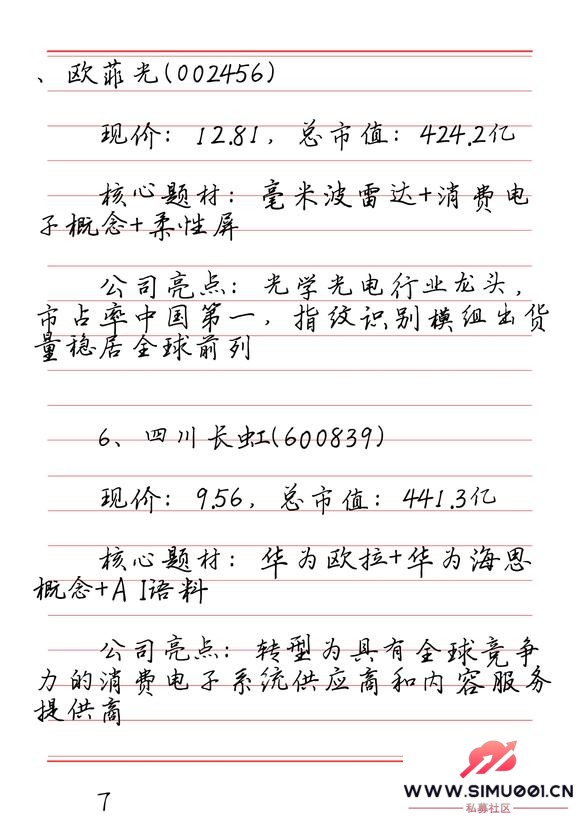 、欧菲光(002456)
现价：12.81，总市值：424.2亿
核心题材：毫米波雷达+消费电
子概念+柔性屏
公司亮点：光学光电行业龙头，
市占率中国第一，指纹识别模组出货
量稳居全球前列
6、四川长虹(600839)
现价：9.56，总市值：441.3亿
核心题材：华为欧拉+华为海思
概念+AI语料
公司亮点：转型为具有全球竞争
力的消费电子系统供应商和内容服务
提供商
7
WWW.SIMU001.CN
私募社区